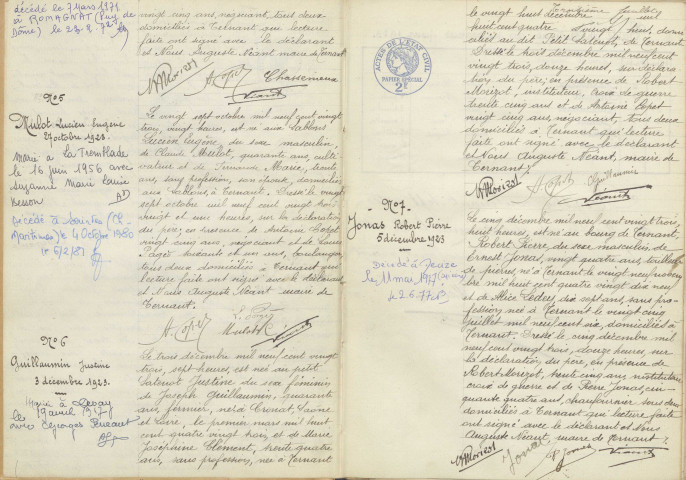 décédé le 7 Mars 1971
à ROMAGNAT (Puy de
Dôme) le 23.2.72
vingt cinq ans, négociant tous deux
domiciliés à Ternant qui lecture
faite ont signé avec le déclarant
et Nous Auguste Néant maire de Ternant
A. Copet Chassemeux
Néant
N° 5
Mulot Lucien Eugène
27 octobre 1923.
Marié à La Tremblade
le 16 juin 1956 avec
Suzanne Marie Louise
Besson
décédé à Saintes (Ch.
Maritime) le 4 Octobre 1980
Le vingt sept octobre mil neuf cent vingt
trois, vingt heures, est né aux Sablons
Lucien Eugène du sexe masculin,
de Claude Mulot, quarante ans, culti-
vateur et de
ans, sans profession, son épouse, domiciliés
aux Sablons, à Ternant. Dressé le vingt
sept octobre mil neuf cent vingt trois
vingt et une heures, sur la déclaration
du père, en présence de Antoine Copet
vingt cinq ans, négociant et de Louis
Pagés soixante et un ans, boulanger,
tous deux domiciliés à Ternant qui
lecture faite ont signé avec le déclarant
et Nous Auguste Néant maire de
Ternant.
A. Copet Mulot L. Pagés Néant
N° 6
Guillaumin Justine
3 décembre 1923.
Marié à
le 19 avril 1947
avec Georges
Le trois décembre mil neuf cent vingt
trois, sept heures, est née au petit
Justine du sexe féminin
de Joseph Guillaumin, quarante
ans, fermier, né à Cronat, Saône
et Loire, le premier mars mil huit
cent quatre vingt trois et de Marie
Joséphine Clément, trente quatre
ans, sans profession, née à Ternant
ACTES DE L'ETAT CIVIL
PAPIER SPECIAL
2F
le vingt huit
huit cent quatre vingt huit, domi-
ciliés au dit Petit de Ternant
Dressé le trois décembre mil neuf cent
vingt trois, douze heures, sur déclara-
tion du père, en présence de Robert
Morizot, instituteur, croix de guerre
trente cinq ans et de Antoine Copet
vingt cinq ans, négociant, tous deux
domiciliés à Ternant qui lecture
faite ont signé avec le déclarant
et Nous Auguste Néant, maire de
Ternant.
R. Morizot A. Copet Guillaumin
Néant
N° 7
Jonas Robert Pierre
5 décembre 1923
Décédé à Decize
le 11 mai 1977
Le cinq décembre mil neuf cent vingt trois,
huit heures, est né au bourg de Ternant
Robert Pierre du sexe masculin, de
Ernest Jonas, vingt quatre ans, tailleur
de pierres, né à Ternant le vingt neuf novem-
bre mil huit cent quatre vingt dix neuf
et de Alice dix sept ans, sans pro-
fession, née à Ternant le vingt cinq
Juillet mil neuf cent six, domiciliés à
Ternant. Dressé le cinq décembre mil
neuf cent vingt trois, douze heures, sur
la déclaration du père, en présence de
Robert Morizot, trente cinq ans, instituteur
croix de guerre et de Pierre Jonas, cin-
quante quatre ans, chaufournier tous deux
domiciliés à Ternant qui lecture faite
ont signé avec le déclarant et Nous
Auguste Néant, maire de Ternant.
R. Morizot Jonas P. Jonas Néant